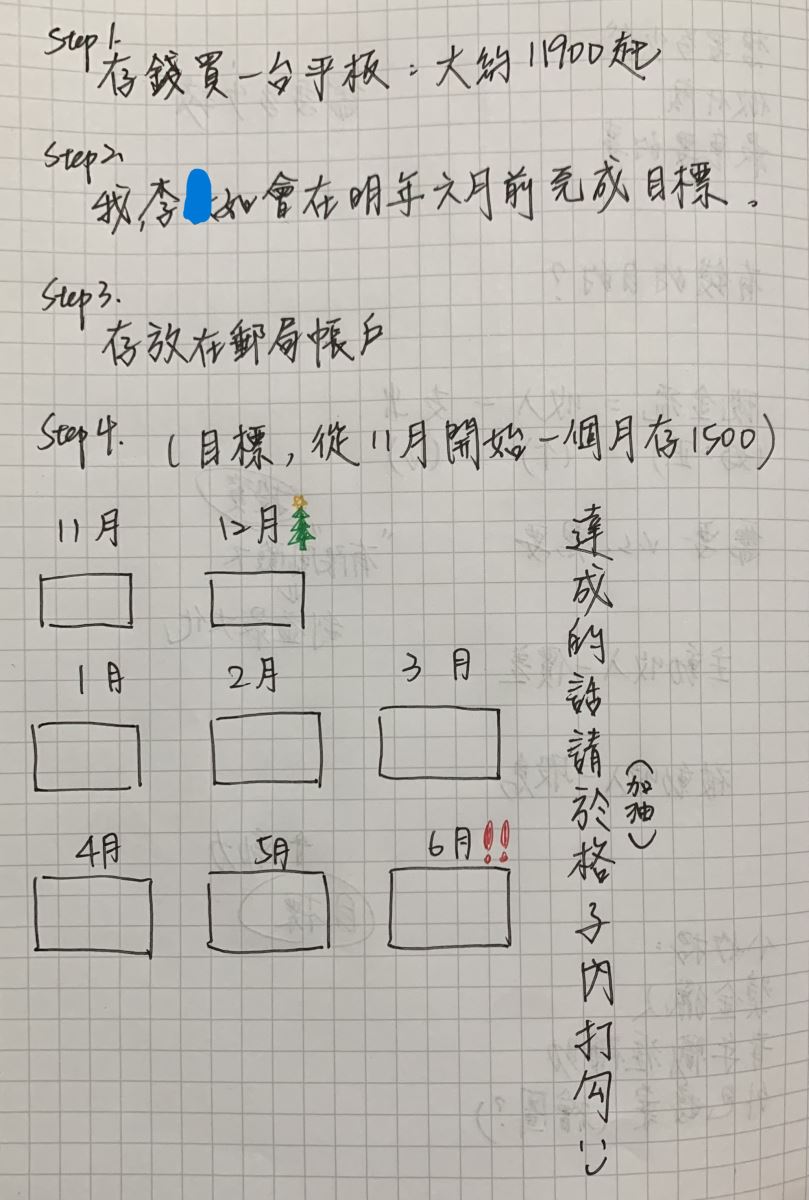 Step 1.
存錢買一台平板：大約11900起
Step 2.
我,李 如會在明年六月前完成目標。
Step 3.
存放在郵局帳戶
Step 4. (目標,從11月開始一個月存1500)
11月 12月
1月 2月 3月
4月 5月 6月!!
達成的話請於格子內打勾:)
(加油)